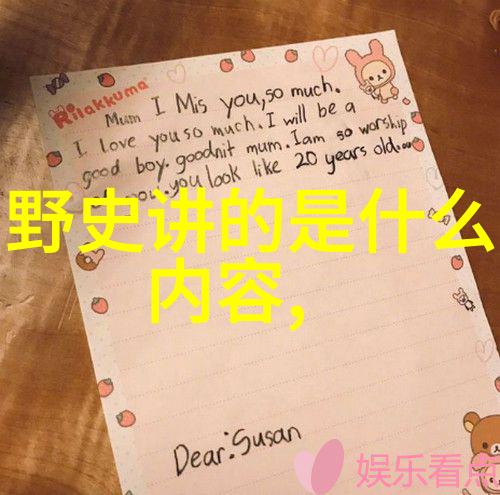 Rilakkuma
Mum I Mis you,so much.
I love you so much. I will be a
good boy. goodnit mum. I am so worship
you. you look like 20 years old.
野史讲的是什么
内容,
Dear:Susan
娱乐看点